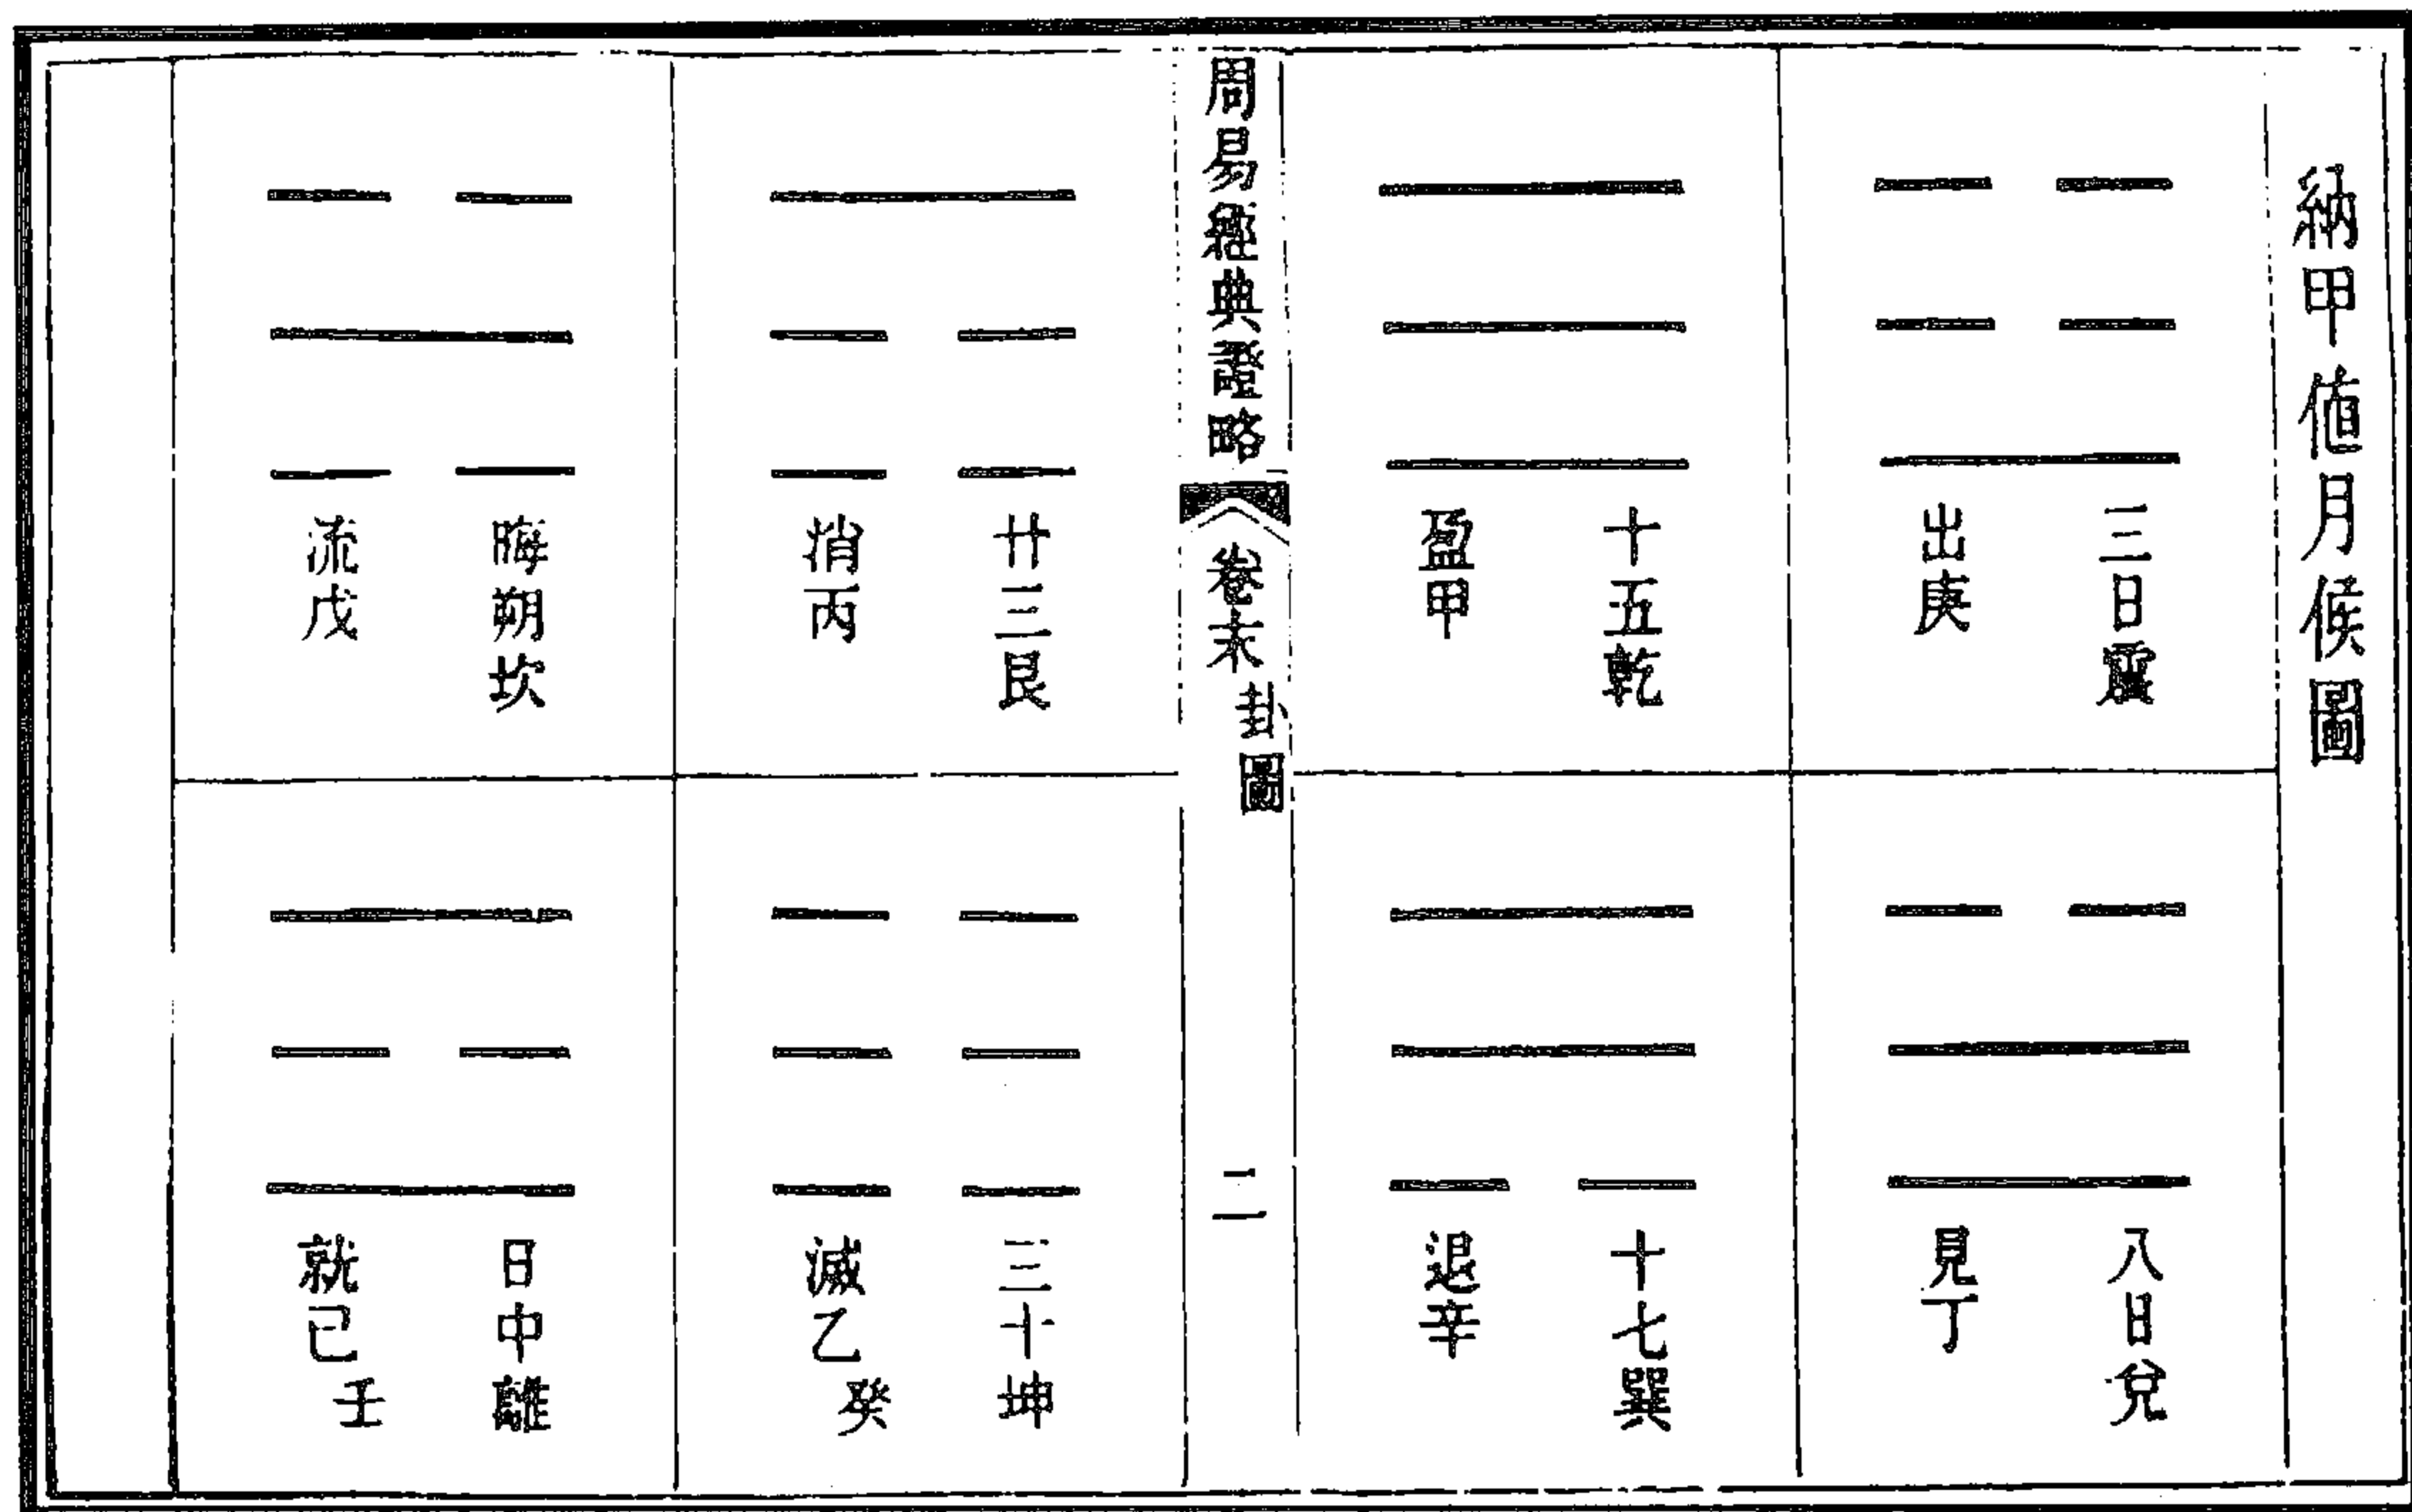 納甲值月候圖
三日震
出庚
八日兌
見丁
十五乾
盈甲
十七巽
退辛
周易經典證略
卷末
卦圖
二
廿三艮
消丙
三十坤
滅乙癸
晦朔坎
流戊
日中離
就己壬